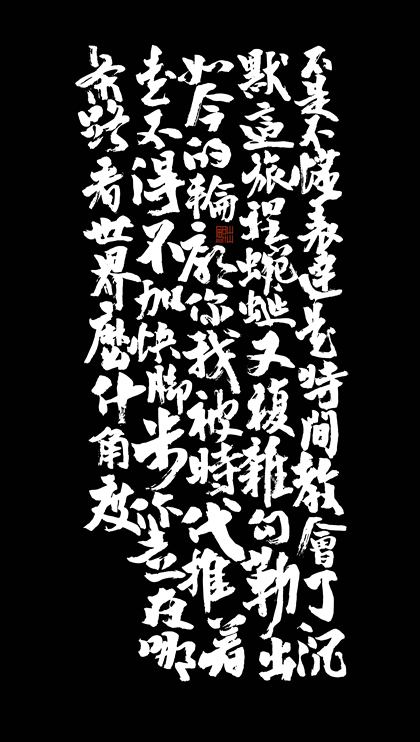 不是不懂表達是時間教會了沉
默這旅程蜿蜒又複雜勾勒出
如今的輪廓你我被時代推着
走又得不加快脚步你在哪
条路看世界麼什角度